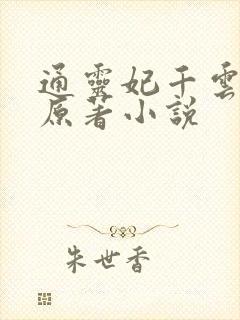 通靈妃千雲
原著小說
朱世香